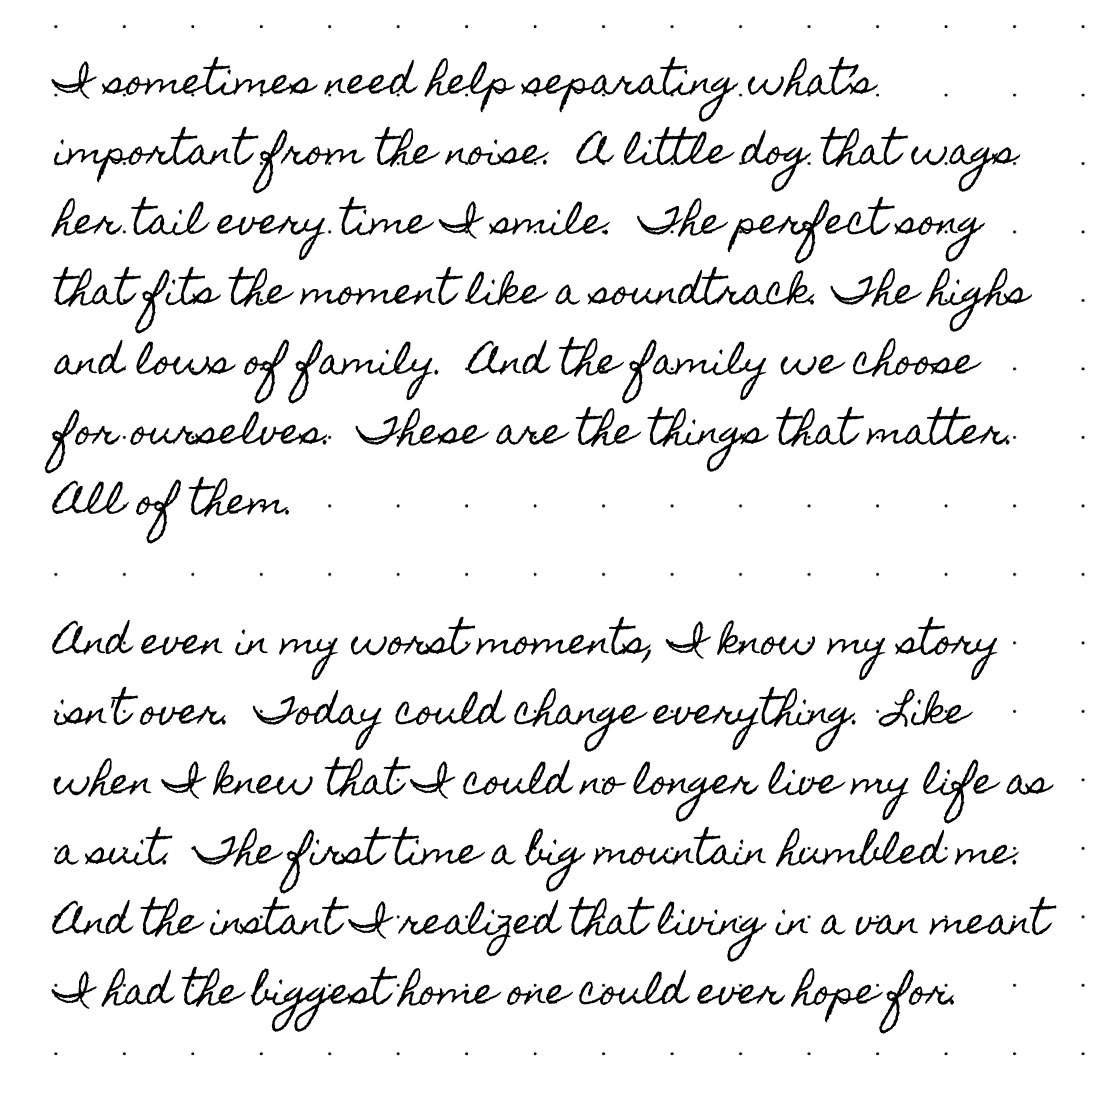 I sometimes need help separating what's
important from the noise. A little dog that wags
her tail every time I smile. The perfect song
that fits the moment like a soundtrack. The highs
and lows of family. And the family we choose
for ourselves. These are the things that matter.
All of them.
And even in my worst moments, I know my story
isn't over. Today could change everything. Like
when I knew that I could no longer live my life as
a suit. The first time a big mountain humbled me.
And the instant I realized that living in a van meant
I had the biggest home one could ever hope for.